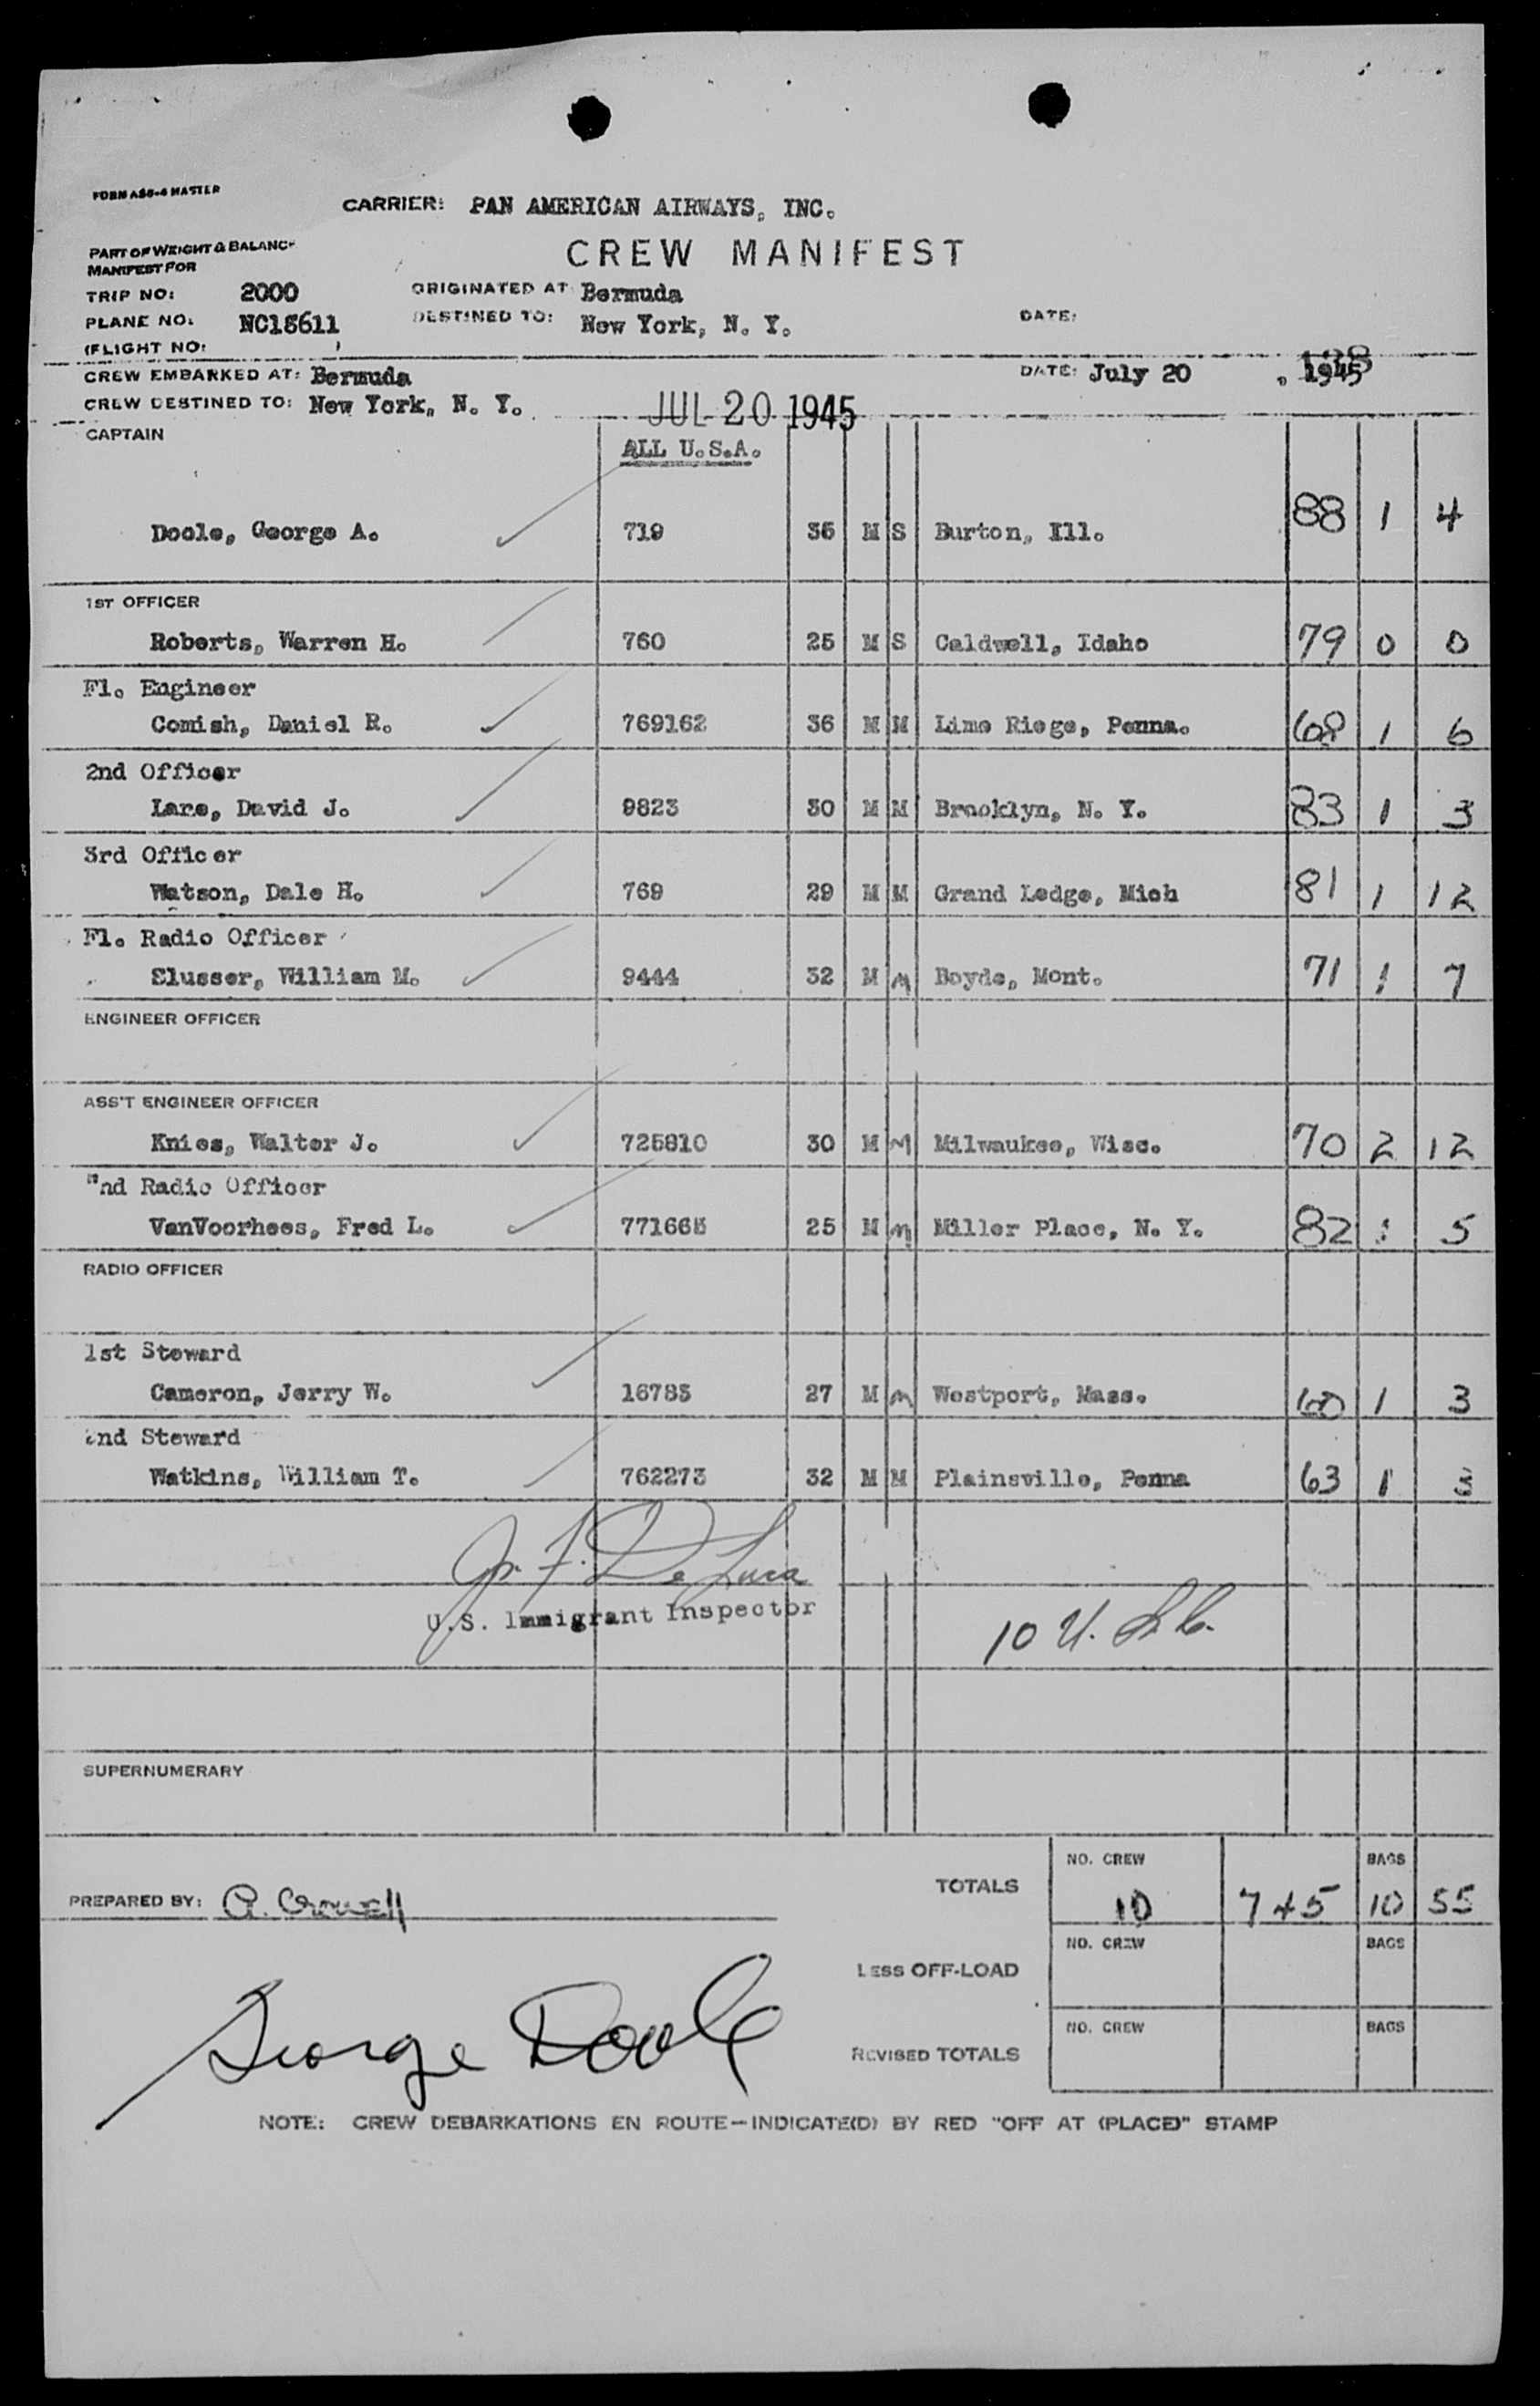 FORM ASS-4 MASTER
CARRIER: PAN AMERICAN AIRWAYS, INC.
PART OF WEIGHT & BALANCE
MANIFEST FOR
CREW MANIFEST
TRIP NO: 2000 ORIGINATED AT Bermuda
PLANE NO. NC18611 DESTINED TO: New York, N. Y. DATE:
(FLIGHT NO: )
CREW EMBARKED AT: Bermuda DATE: July 20, 1945
CREW DESTINED TO: New York, N. Y. JUL 20 1945
CAPTAIN ALL U.S.A.
Doole, George A. 719 35 M S Burton, Ill. 88 1 4
1ST OFFICER
Roberts, Warren H. 760 25 M S Caldwell, Idaho 79 0 0
Fl. Engineer
Comish, Daniel R. 769162 36 M M Lime Riege, Penna. 68 1 6
2nd Officer
Lare, David J. 9823 30 M M Brooklyn, N. Y. 83 1 3
3rd Officer
Watson, Dale H. 769 29 M M Grand Ledge, Mich 81 1 12
Fl. Radio Officer
Slusser, William M. 9444 32 M M Boyde, Mont. 71 1 7
ENGINEER OFFICER
ASS'T ENGINEER OFFICER
Knies, Walter J. 725810 30 M M Milwaukee, Wisc. 70 2 12
2nd Radio Officer
VanVoorhees, Fred L. 771665 25 M M Miller Place, N. Y. 82 1 5
RADIO OFFICER
1st Steward
Cameron, Jerry W. 16783 27 M M Westport, Mass. 60 1 3
2nd Steward
Watkins, William T. 762273 32 M M Plainsville, Penna 63 1 3
Jr. F. De Luca
U.S. Immigrant Inspector
10 U.
SUPERNUMERARY
NO. CREW BAGS
PREPARED BY: TOTALS 10 745 10 55
NO. CREW BAGS
LESS OFF-LOAD
NO. CREW BAGS
REVISED TOTALS
George Doole
NOTE: CREW DEBARKATIONS EN ROUTE—INDICATE(D) BY RED "OFF AT (PLACE)" STAMP